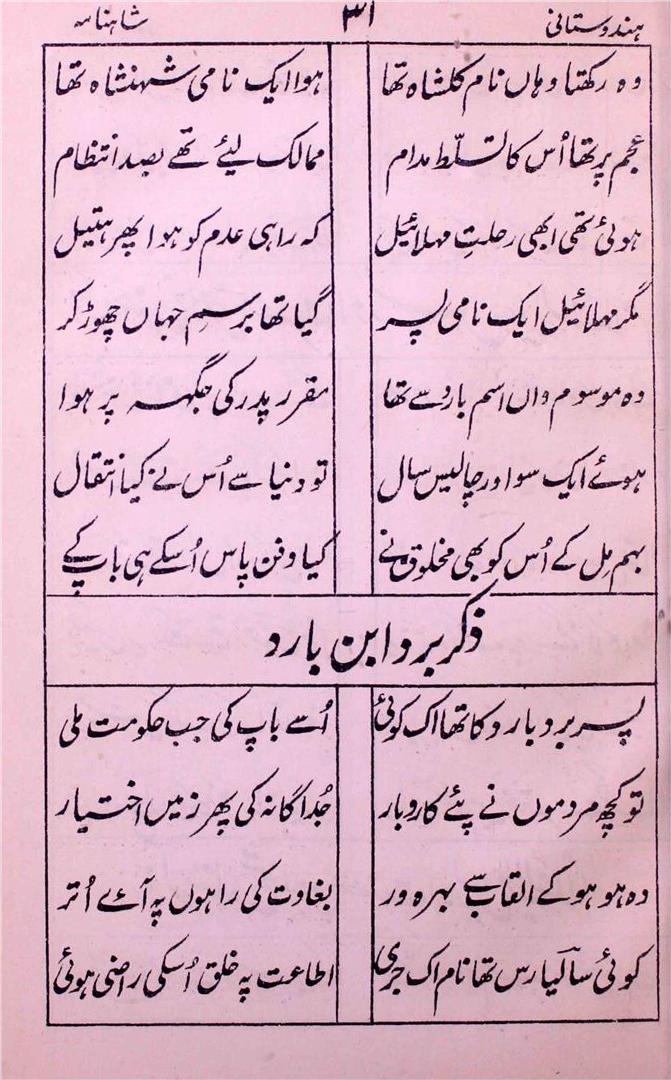 ہندوستانی ۳۱ شاہنامہ
وہ رکھتا وہاں نام کلشاہ تھا ہوا ایک نامی شہنشاہ تھا
عجم پر تھا اُس کا تسلّط مدام ممالک لیئے تھے بصد انتظام
ہوئی تھی ابھی رحلتِ مہلائیل کہ راہی عدم کو ہوا پھر ہتیل
مگر مہلائیل ایک نامی پسر گیا تھا برسمِ جہاں چھوڑ کر
وہ موسوم واں اسم بارد سے تھا مقرر پدر کی جگہہ پر ہوا
ہوئے ایک سو اور چالیس سال تو دنیا سے اُس نے کیا انتقال
بہم مِل کے اُس کو بھی مخلوق نے کیا دفن پاس اُسکے ہی باپ کے
ذکر برد ابن بارد
پسر برد بارد کا تھا اک کوئی اُسے باپ کی جب حکومت ملی
تو کچھ مردموں نے پئے کاروبار جُداگانہ کی پھر زمیں اختیار
وہ ہو ہو کے القاب سے بہرہ ور بغاوت کی راہوں پہ آئے اُتر
کوئی سآلیارس تھا نام اک جری اطاعت پہ خلق اُسکی راضی ہوئی